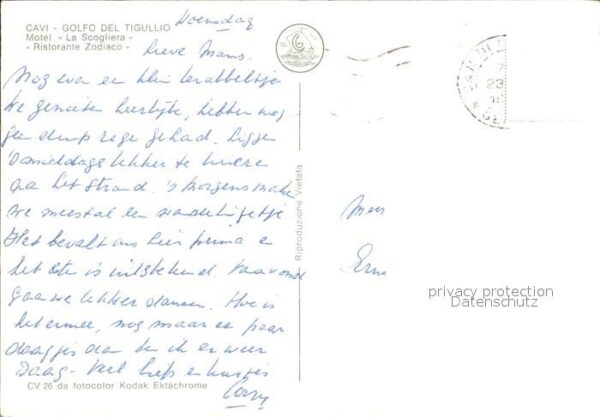 Woensdag
CAVI - GOLFO DEL TIGULLIO
Motel - La Scogliera -
- Ristorante Zodiaco -
Lieve Mams.
Nog even een klein krabbeltje
We genieten heerlijk, hebben nog
geen drup regen gehad. Liggen
's middags lekker te luieren
aan het strand. 's morgens maken
we meestal een wandelingetje
Het bevalt ons hier prima en
het eten is uitstekend. Vanavond
gaan we lekker dansen. Hoe is
het ermee, nog maar een paar
daagjes dan ben ik er weer
Daag. Veel liefs en kusjes
Corry
CV 26 da fotocolor Kodak Ektachrome
Riproduzione Vietata
23
Mevr
privacy protection
Datenschutz